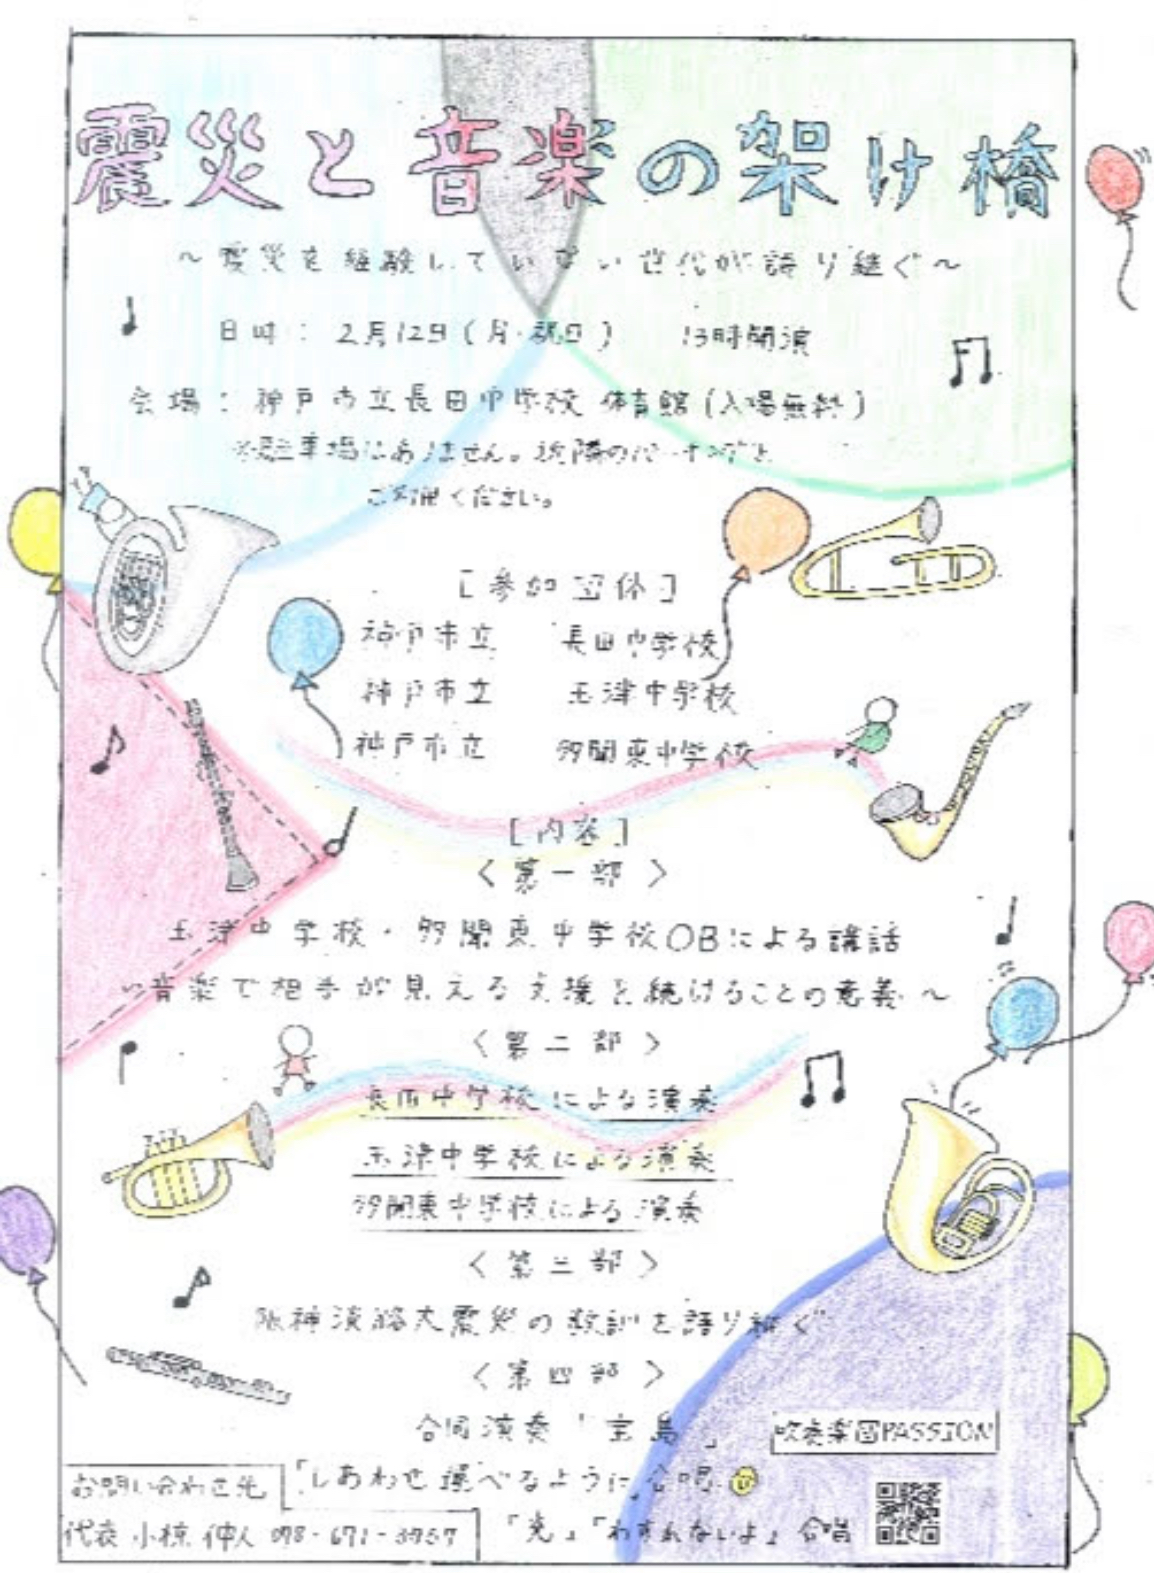 震災と音楽の架け橋
～震災を経験していない世代が語り継ぐ～
日時：2月12日（月・祝日） 13時開演
会場：神戸市立長田中学校 体育館（入場無料）
※駐車場はありません。近隣のパーキングを
ご利用ください。
［参加団体］
神戸市立 長田中学校
神戸市立 玉津中学校
神戸市立 多聞東中学校
［内容］
〈第一部〉
玉津中学校・多聞東中学校OBによる講話
～音楽で相手が見える支援を続けることの意義～
〈第二部〉
長田中学校による演奏
玉津中学校による演奏
多聞東中学校による演奏
〈第三部〉
阪神淡路大震災の教訓を語り継ぐ
〈第四部〉
合同演奏「宝島」
吹奏楽団PASSION
「しあわせ運べるように」合唱
「光」「わすれないよ」合唱
お問い合わせ先
代表 小椋 伸人